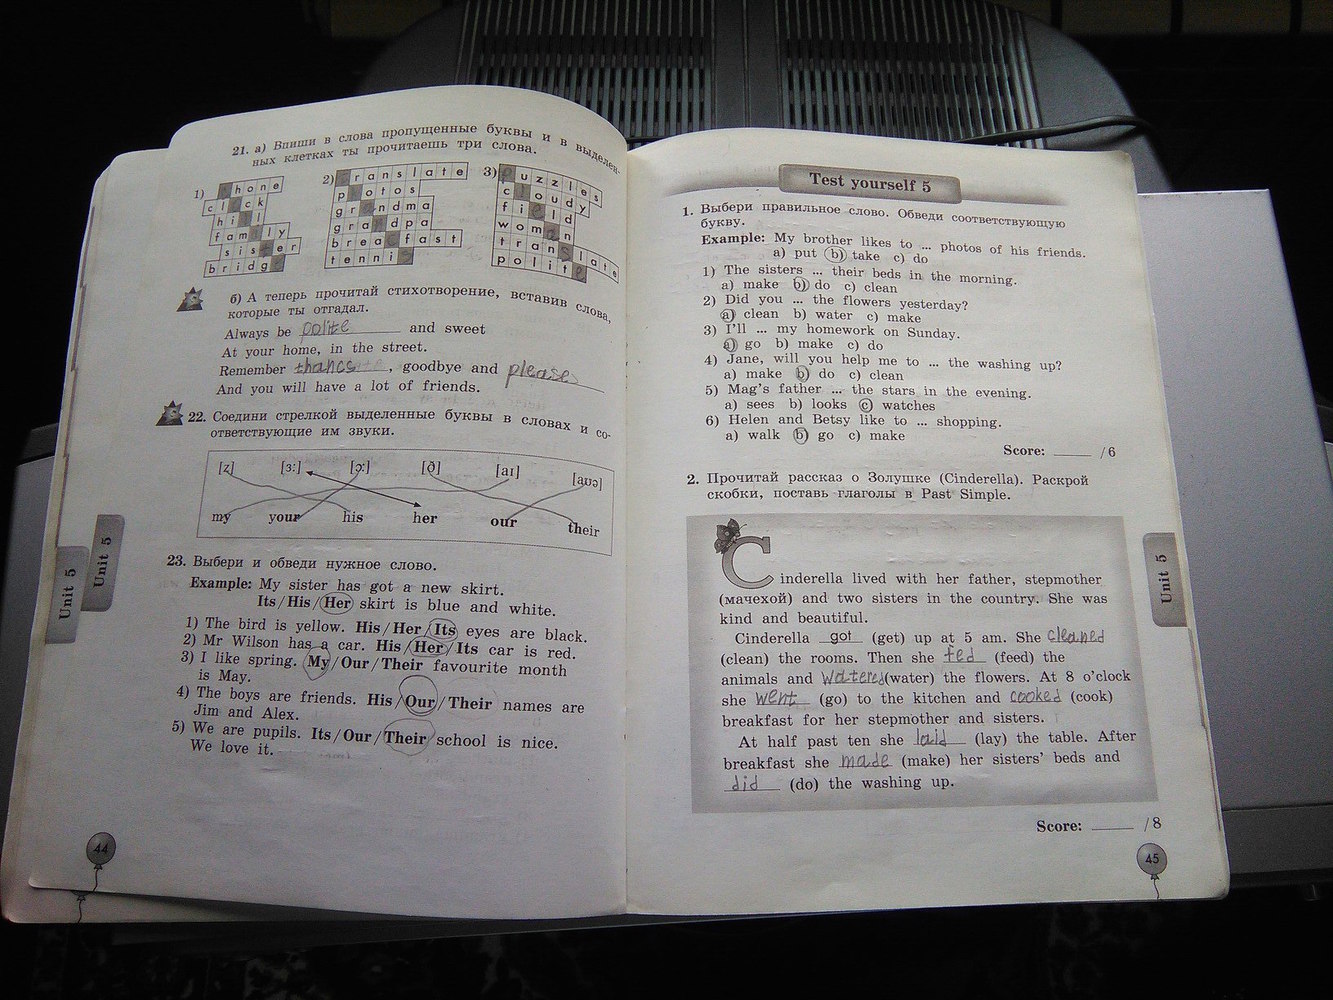 21. а) Впиши в слова пропущенные буквы и в выделен-
ных клетках ты прочитаешь три слова.
1)
hone
cl ck
hi l
fam ly
sis er
bridge
2)
ranslate
p otos
gr ndma
gra dpa
brea fast
tenni
3)
puzzles
cloudy
field
woman
translate
polite
б) А теперь прочитай стихотворение, вставив слова,
которые ты отгадал.
Always be polite and sweet
At your home, in the street.
Remember , goodbye and please
And you will have a lot of friends.
22. Соедини стрелкой выделенные буквы в словах и со-
ответствующие им звуки.
[z] [ɜ:] [ɔ:] [ð] [aɪ] [aʊə]
my your his her our their
23. Выбери и обведи нужное слово.
Example: My sister has got a new skirt.
Its/His/Her skirt is blue and white.
1) The bird is yellow. His/Her/Its eyes are black.
2) Mr Wilson has a car. His/Her/Its car is red.
3) I like spring. My/Our/Their favourite month
is May.
4) The boys are friends. His/Our/Their names are
Jim and Alex.
5) We are pupils. Its/Our/Their school is nice.
We love it.
Unit 5
Unit 5
44
Test yourself 5
1. Выбери правильное слово. Обведи соответствующую
букву.
Example: My brother likes to ... photos of his friends.
a) put b) take c) do
1) The sisters ... their beds in the morning.
a) make b) do c) clean
2) Did you ... the flowers yesterday?
a) clean b) water c) make
3) I'll ... my homework on Sunday.
a) go b) make c) do
4) Jane, will you help me to ... the washing up?
a) make b) do c) clean
5) Mag's father ... the stars in the evening.
a) sees b) looks c) watches
6) Helen and Betsy like to ... shopping.
a) walk b) go c) make
Score: /6
2. Прочитай рассказ о Золушке (Cinderella). Раскрой
скобки, поставь глаголы в Past Simple.
Cinderella lived with her father, stepmother
(мачехой) and two sisters in the country. She was
kind and beautiful.
Cinderella got (get) up at 5 am. She cleaned
(clean) the rooms. Then she fed (feed) the
animals and watered (water) the flowers. At 8 o'clock
she went (go) to the kitchen and cooked (cook)
breakfast for her stepmother and sisters.
At half past ten she laid (lay) the table. After
breakfast she made (make) her sisters' beds and
did (do) the washing up.
Score: /8
Unit 5
45